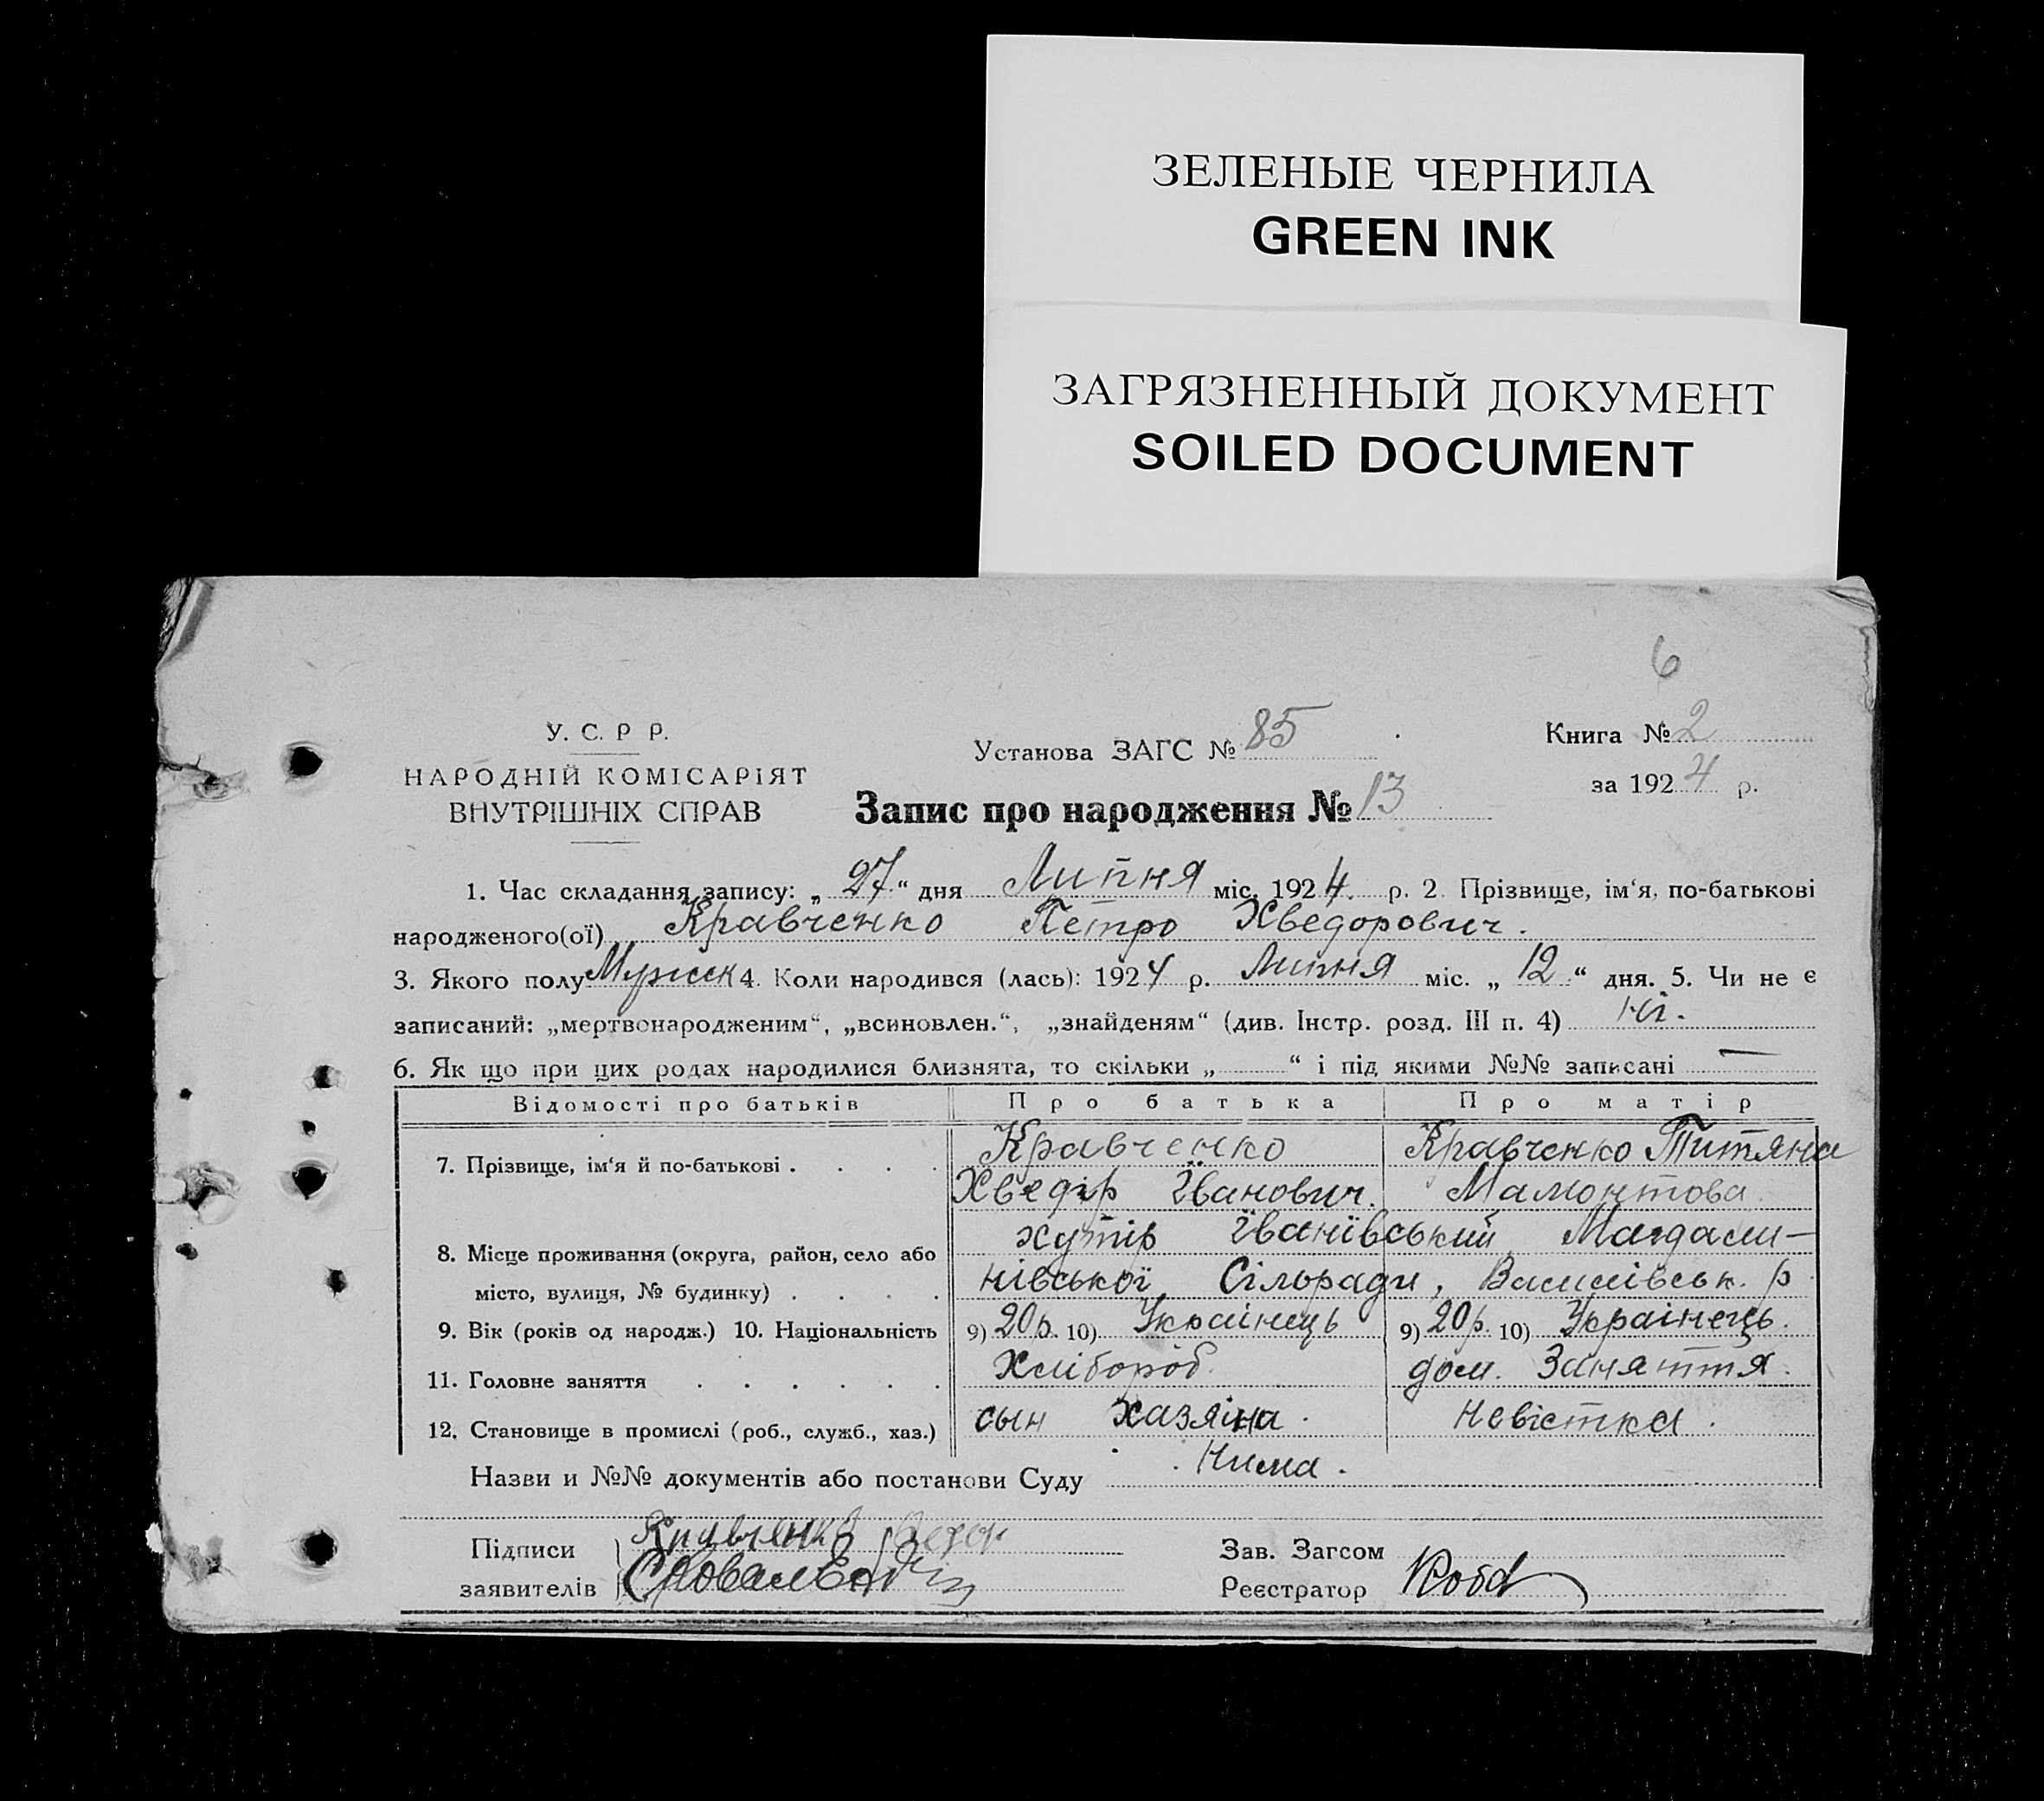 ЗЕЛЕНЫЕ ЧЕРНИЛА
GREEN INK
ЗАГРЯЗНЕННЫЙ ДОКУМЕНТ
SOILED DOCUMENT
6
У. С. Р Р.
НАРОДНІЙ КОМІСАРІЯТ
ВНУТРІШНІХ СПРАВ
Установа ЗАГС № 85
Книга № 2
за 1924 р.
Запис про народження № 13
1. Час складання запису: „27“ дня Липня міс. 1924. р. 2. Прізвище, ім‘я, по-батькові
народженого(ої) Кравченко Петро Хведорович.
3. Якого полу Мужск 4. Коли народився (лась): 1924 р. Липня міс. „12“ дня. 5. Чи не є
записаний: „мертвонародженим“, „всиновлен.“, „знайденям“ (див. Інстр. розд. III п. 4) ні.
6. Як що при цих родах народилися близнята, то скільки „ “ і під якими №№ записані —
Відомості про батьків Про батька Про матір
7. Прізвище, ім‘я й по-батькові . . . . Кравченко Кравченко Титяна
Хведір Іванович. Мамонтова
хутір Іванівський Магдали-
8. Місце проживання (округа, район, село або
нівської Сільради, Василівськ. р
місто, вулиця, № будинку) . . . .
9. Вік (років од народж.) 10. Національність 9) 20р. 10) Украінець 9) 20р. 10) Украінець.
11. Головне заняття . . . . . . Хлібороб. дом. Заняття.
12. Становище в промислі (роб., служб., хаз.) сын хазяіна. невістка.
Назви и №№ документів або постанови Суду Нима.
Підписи Кравченко
заявителів
Зав. Загсом
Реєстратор